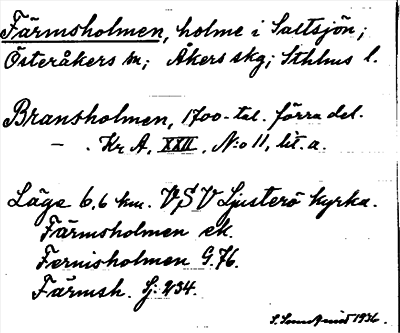 Färmsholmen, holme i Saltsjön;
Österåkers sn; Åkers skg; Sthlms l.
Bransholmen, 1700-tal. förra del.
– . Kr A, XXII, N:o 11, lit. a.
Läge 6,6 km. VSV Ljusterö kyrka.
Färmsholmen ek.
Fernisholmen G. 76.
Färmsh. Sj. 234.
1936.